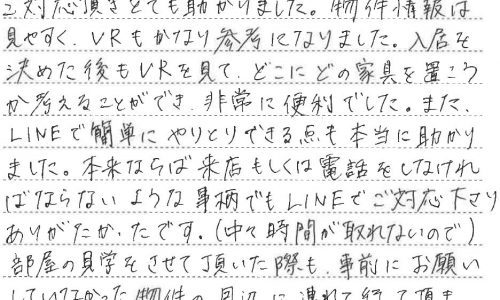 ご対応頂きとても助かりました。物件情報は
見やすく、VRもかなり参考になりました。入居を
決めた後もVRを見て、どこにどの家具を置こう
か考えることができ、非常に便利でした。また、
LINEで簡単にやりとりできる点も本当に助かり
ました。本来ならば来店もしくは電話をしなけれ
ばならないような事柄でもLINEでご対応下さり
ありがたかったです。(中々時間が取れないので)
部屋の見学をさせて頂いた際も、事前にお願い
していなかった物件の周辺に連れて行って頂き